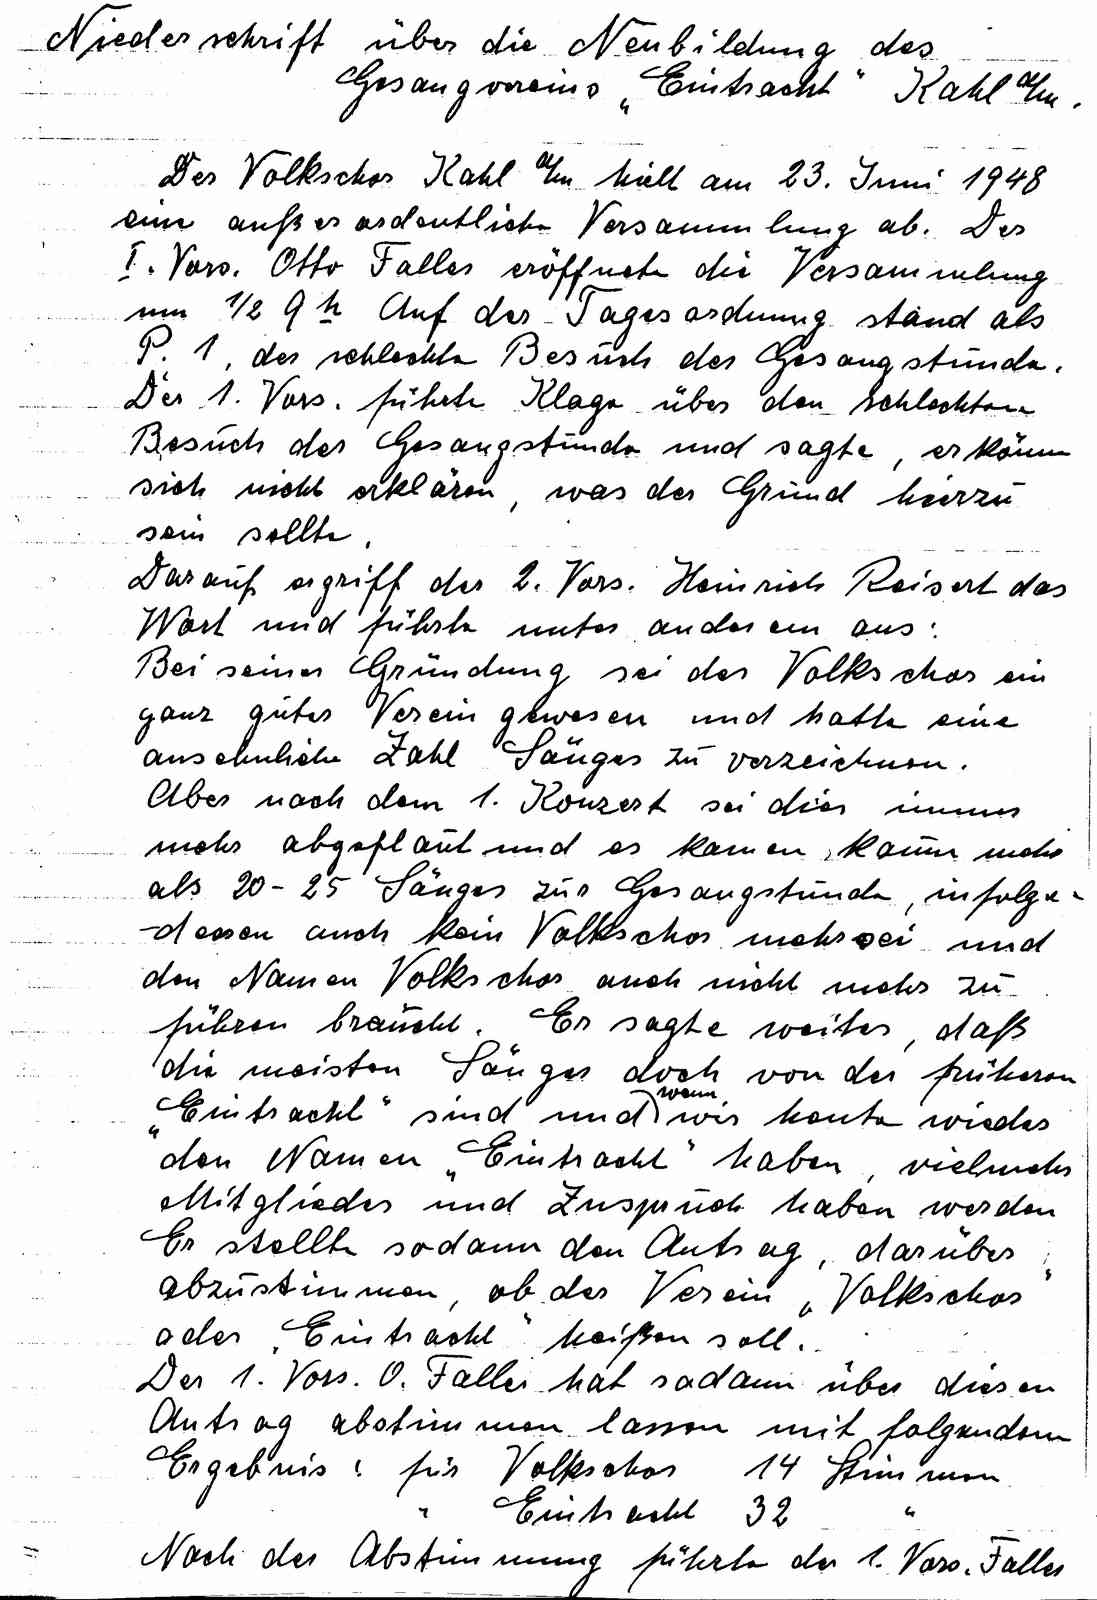 Niederschrift über die Neubildung des
Gesangvereins „Eintracht" Kahl a/m.
Der Volkschor Kahl a/m hielt am 23. Juni 1948
eine außerordentliche Versammlung ab. Der
I. Vors. Otto Faller eröffnete die Versammlung
um 1/2 9 h Auf der Tagesordnung stand als
P. 1, der schlechte Besuch der Gesangstunde.
Der 1. Vors. führte Klage über den schlechten
Besuch der Gesangstunde und sagte, er könne
sich nicht erklären, was der Grund hierzu
sein sollte.
Darauf ergriff der 2. Vors. Heinrich Reisert das
Wort und führte unter anderem aus:
Bei seiner Gründung sei der Volkschor ein
ganz guter Verein gewesen und hatte eine
ansehnliche Zahl Sänger zu verzeichnen.
Aber nach dem 1. Konzert sei dies immer
mehr abgeflaut und es kamen kaum mehr
als 20-25 Sänger zur Gesangstunde, infolge-
-dessen auch kein Volkschor mehr sei und
den Namen Volkschor auch nicht mehr zu
führen braucht. Er sagte weiter, daß
die meisten Sänger doch von der früheren
„Eintracht" sind und wenn wir heute wieder
den Namen „Eintracht" haben, vielmehr
Mitglieder und Zuspruch haben werden
Er stellte sodann den Antrag, darüber
abzustimmen, ob der Verein „Volkschor"
oder „Eintracht" heißen soll.
Der 1. Vors. O. Faller hat sodann über diesen
Antrag abstimmen lassen mit folgendem
Ergebnis: für Volkschor 14 Stimmen
" Eintracht 32 "
Nach der Abstimmung führte der 1. Vors. Faller